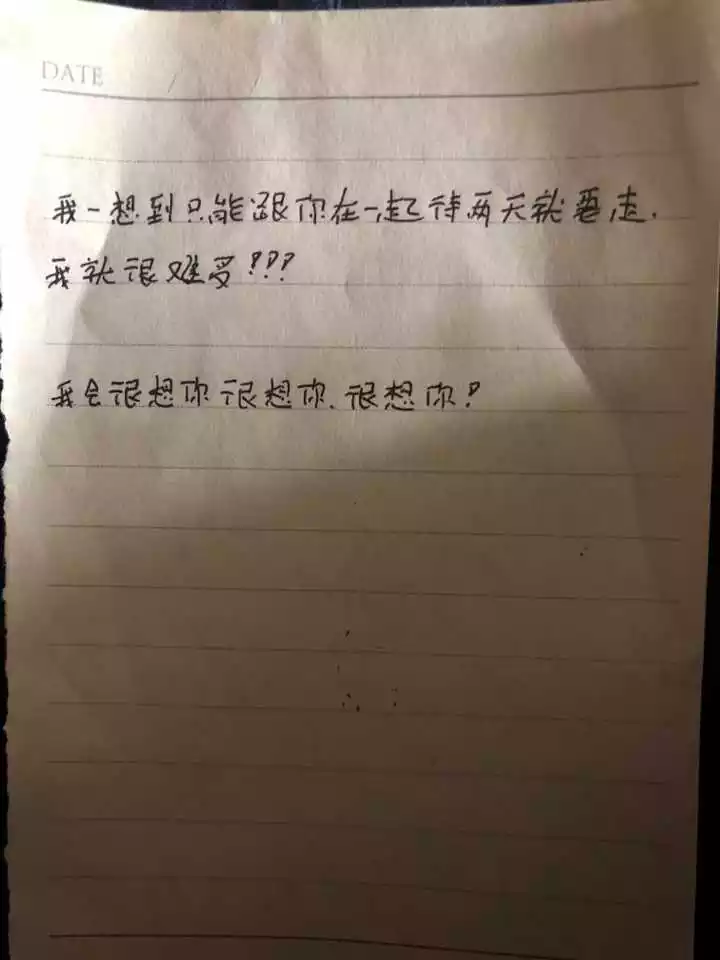 DATE
我一想到只能跟你在一起待两天就要走.
我就很难受!!!
我会很想你很想你.很想你!